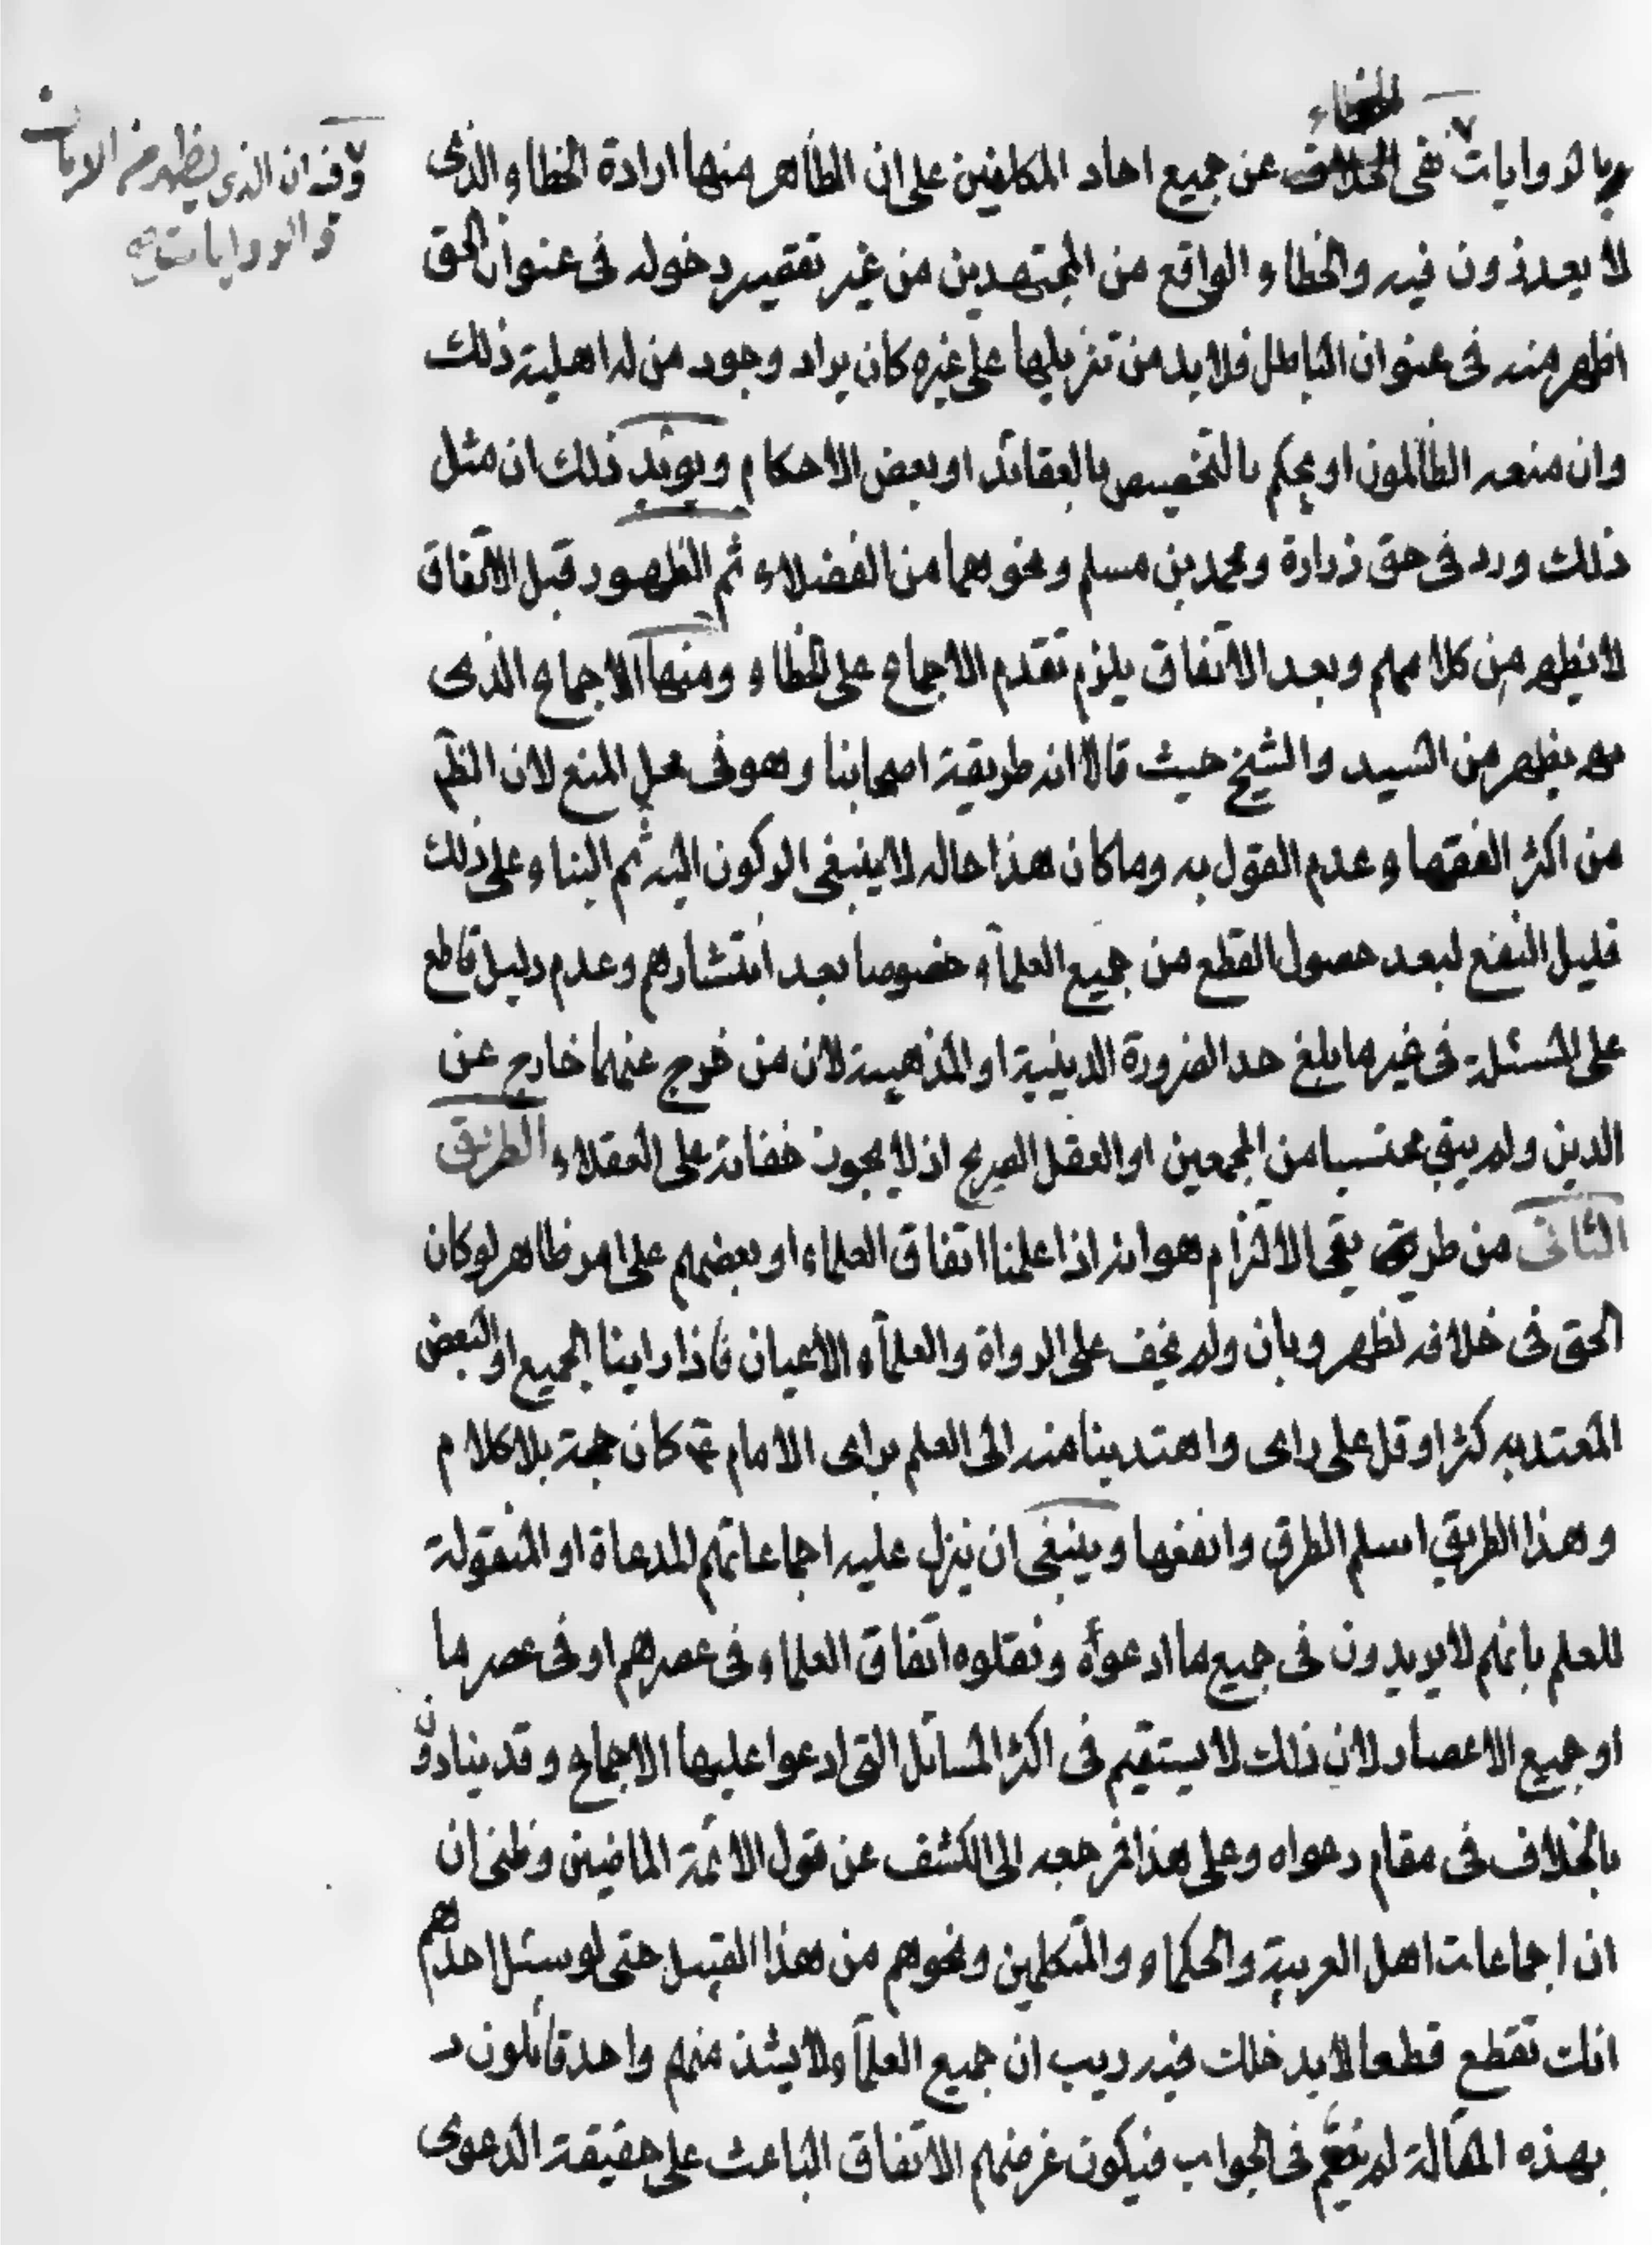 الخطاء
وبالروايات نفى الخلاف عن جميع احاد المكلفين على ان الظاهر منها ارادة الخطاء الذى
لا يعذرون فيه والخطاء الواقع من المجتهدين من غير تقصير دخوله فى عنوان الحق
اظهر منه فى عنوان الباطل فلا بد من تنزيلها على غيره كان يراد وجود من له اهلية ذلك
وان منعه الظالمون او يحكم بالتخصيص بالعقائد او بعض الاحكام ويؤيد ذلك ان مثل
ذلك ورد فى حق زرارة ومحمد بن مسلم ونحوهما من الفضلاء ثم الظهور قبل الاتفاق
لا يظهر من كلامهم وبعد الاتفاق يلزم تقدم الاجماع على الخطاء ومنها الاجماع الذى
يظهر من السيد والشيخ حيث قالا انه طريقة اصحابنا وهو فى محل المنع لان الظم
من اكثر الفقهاء وعدم القول به وما كان هذا حاله لا ينبغى الركون اليه ثم البناء على ذلك
قليل النفع لبعد حصول القطع من جميع العلماء خصوصا بعد انتشارهم وعدم دليل قاطع
على المسئلة فى غير ما بلغ حد الضرورة الدينية او المذهبية لان من خرج عنهما خارج عن
الدين ولم يبق محتسبا من المجمعين او العقل الصريح اذ لا يجوز خفائه على العقلاء الطريق
الثانى من طريق بقى الالتزام هو انه اذا علمنا اتفاق العلماء او بعضهم على امر ظاهر لو كان
الحق فى خلافه لظهر وبان ولم يخف على الرواة والعلماء الاعيان فاذا راينا الجميع او البعض
المعتد به كثر او قل على راى واهتدينا منه الى العلم براى الامام ع كان حجة بلا كلام
وهذا الطريق اسلم الطرق وانفعها وينبغى ان ينزل عليه اجماعاتهم المدعاة او المنقولة
للعلم بانهم لا يريدون فى جميع ما ادعوه ونقلوه اتفاق العلماء فى عصرهم او فى عصر ما
او جميع الاعصار لان ذلك لا يستقيم فى اكثر المسائل التى ادعوا عليها الاجماع وقد ينادون
بالخلاف فى مقام دعواه وعلى هذا فمرجعه الى الكشف عن قول الائمة الماضين وظنى ان
ان اجماعات اهل العربية والحكماء والمتكلمين ونحوهم من هذا القبيل حتى لو سئل احدهم
انك تقطع قطعا لا يدخلك فيه ريب ان جميع العلماء ولا يشذ منهم واحد قائلون
بهذه المقالة لم فى الجواب فيكون غرضهم الاتفاق الباعث على حقيقة الدعوى
وفيه ان الذى يظهر من الايات
والروايات